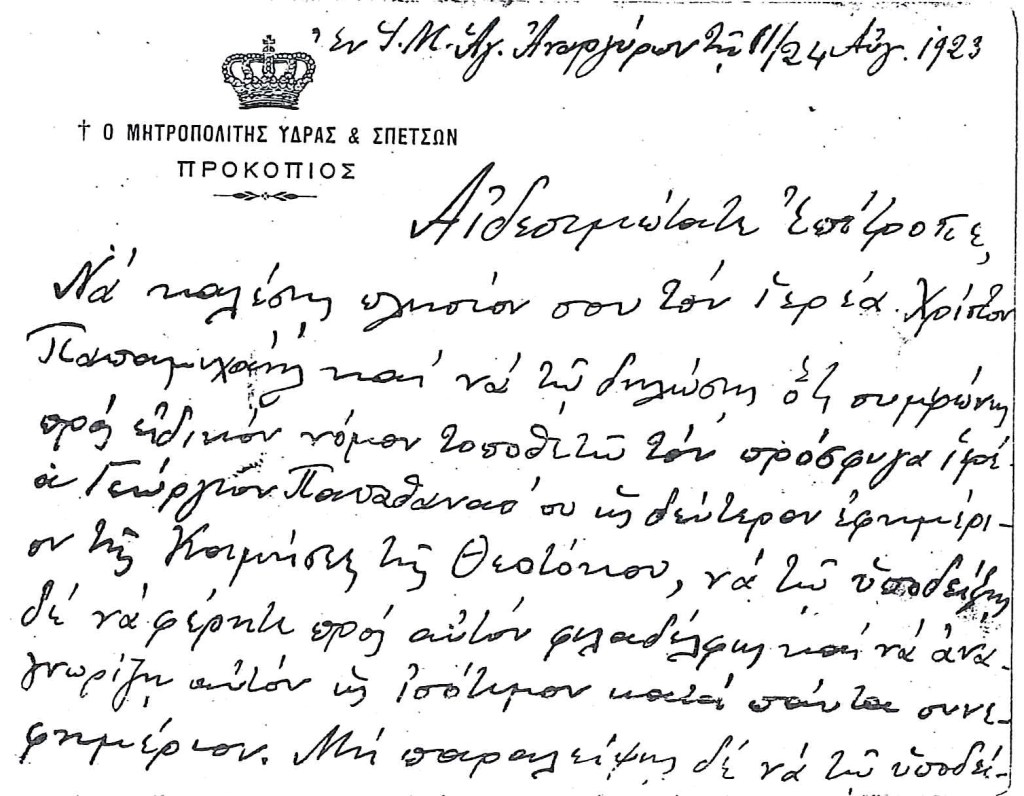 Ἐν Ἱ. Μ. Ἁγ. Ἀναργύρων τῇ 11/24 Αὐγ. 1923
† Ο ΜΗΤΡΟΠΟΛΙΤΗΣ ΥΔΡΑΣ & ΣΠΕΤΣΩΝ
ΠΡΟΚΟΠΙΟΣ
Αἰδεσιμώτατε Ἐπίτροπε,
Νά καλέσῃς πλησίον σου τόν ἱερέα Χρίστον
Παπαμιχαήλ καί νά τῷ δηλώσῃς ὅτι συμφώνως
πρός εἰδικόν νόμον τοποθετῶ τόν πρόσφυγα ἱερέ-
α Γεώργιον Παπαθανασίου ὡς δεύτερον ἐφημέρι-
ον τῆς Κοιμήσεως τῆς Θεοτόκου, νά τῷ ὑποδείξῃς
δέ νά φέρηται πρός αὐτόν φιλαδέλφως καί νά ἀνα-
γνωρίζῃ αὐτόν ὡς ἰσότιμον κατά πάντα συνε-
φημέριον. Μή παραλείψῃς δέ νά τῷ ὑποδεί-